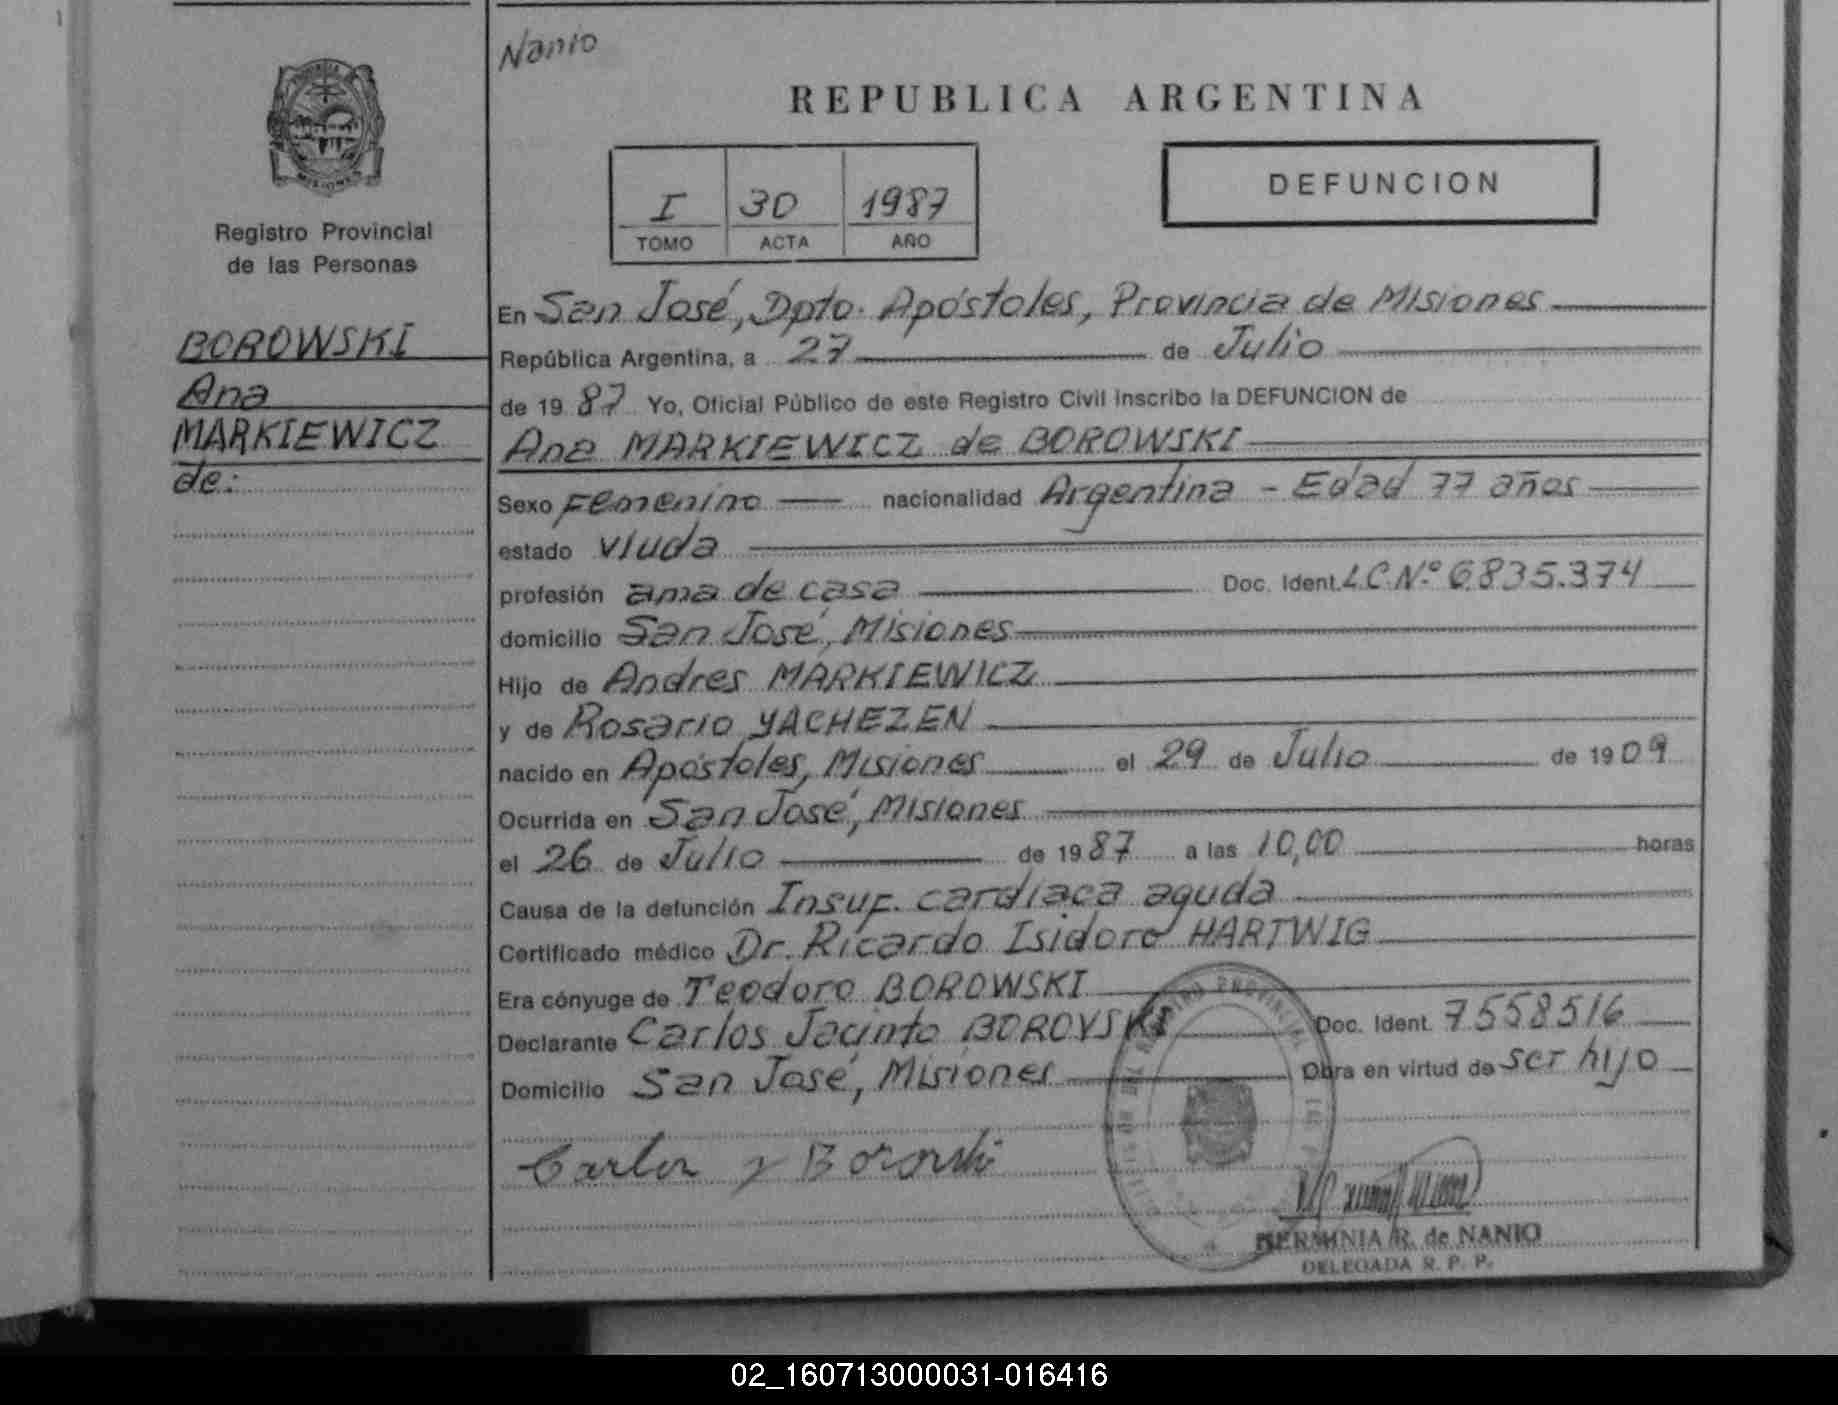 Nanio
REPUBLICA ARGENTINA
PROVINCIA DE
MISIONES
Registro Provincial
de las Personas
BOROWSKI
Ana
MARKIEWICZ
de:
I 30 1987
TOMO ACTA AÑO
DEFUNCION
En San José, Dpto. Apóstoles, Provincia de Misiones
República Argentina, a 27 de Julio
de 1987 Yo, Oficial Público de este Registro Civil inscribo la DEFUNCION de
Ana MARKIEWICZ de BOROWSKI
Sexo Femenino nacionalidad Argentina - Edad 77 años
estado viuda
profesión ama de casa Doc. Ident. L.C.Nº 6835.374
domicilio San José, Misiones
Hijo de Andres MARKIEWICZ
y de Rosario YACHEZEN
nacido en Apóstoles, Misiones el 29 de Julio de 1909
Ocurrida en San José, Misiones
el 26 de Julio de 1987 a las 10,00 horas
Causa de la defunción Insuf. cardíaca aguda
Certificado médico Dr. Ricardo Isidoro HARTWIG
Era cónyuge de Teodoro BOROWSKI
Declarante Carlos Jacinto BOROVSKI Doc. Ident. 7558516
Domicilio San José, Misiones Obra en virtud de ser hijo
Carlos J Borovski
HERMINIA R. de NANIO
DELEGADA R. P. P.
02_160713000031-016416